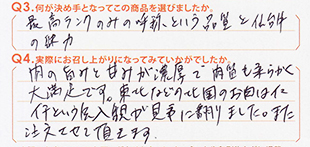 Q3.何が決め手となってこの商品を選びましたか。
最高ランクのみの呼称、という品質と仙台牛
の魅力
Q4.実際にお召し上がりになってみていかがでしたか。
肉の旨みと甘みが濃厚で肉質も柔らかく
大満足です。東北などの北国のお肉は仁
イチという先入観が見事に覆りました。また
注文させて頂きます。